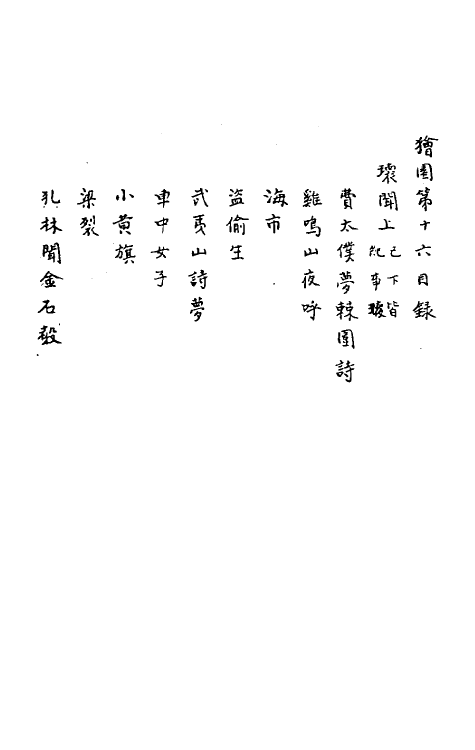 獪園第十六目錄
瓌聞上 已下皆紀事瓌
費太僕夢棘圍詩
雞鳴山夜呼
海市
盜偷生
武夷山詩夢
車中女子
小黃旗
梁裂
孔林聞金石聲